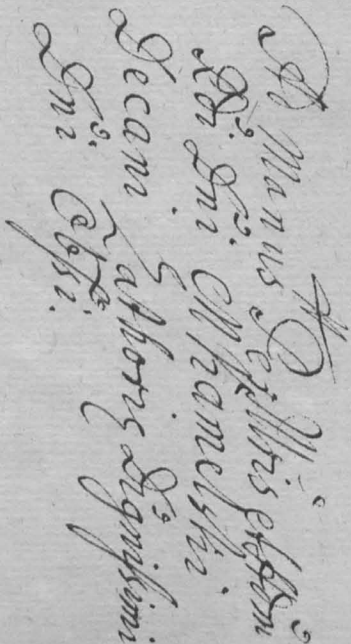 Ad Manus Per Illris et Adm
Rdi Dni Chramelski
Decani Zathorie Dignissimi
Dni Cobssi.